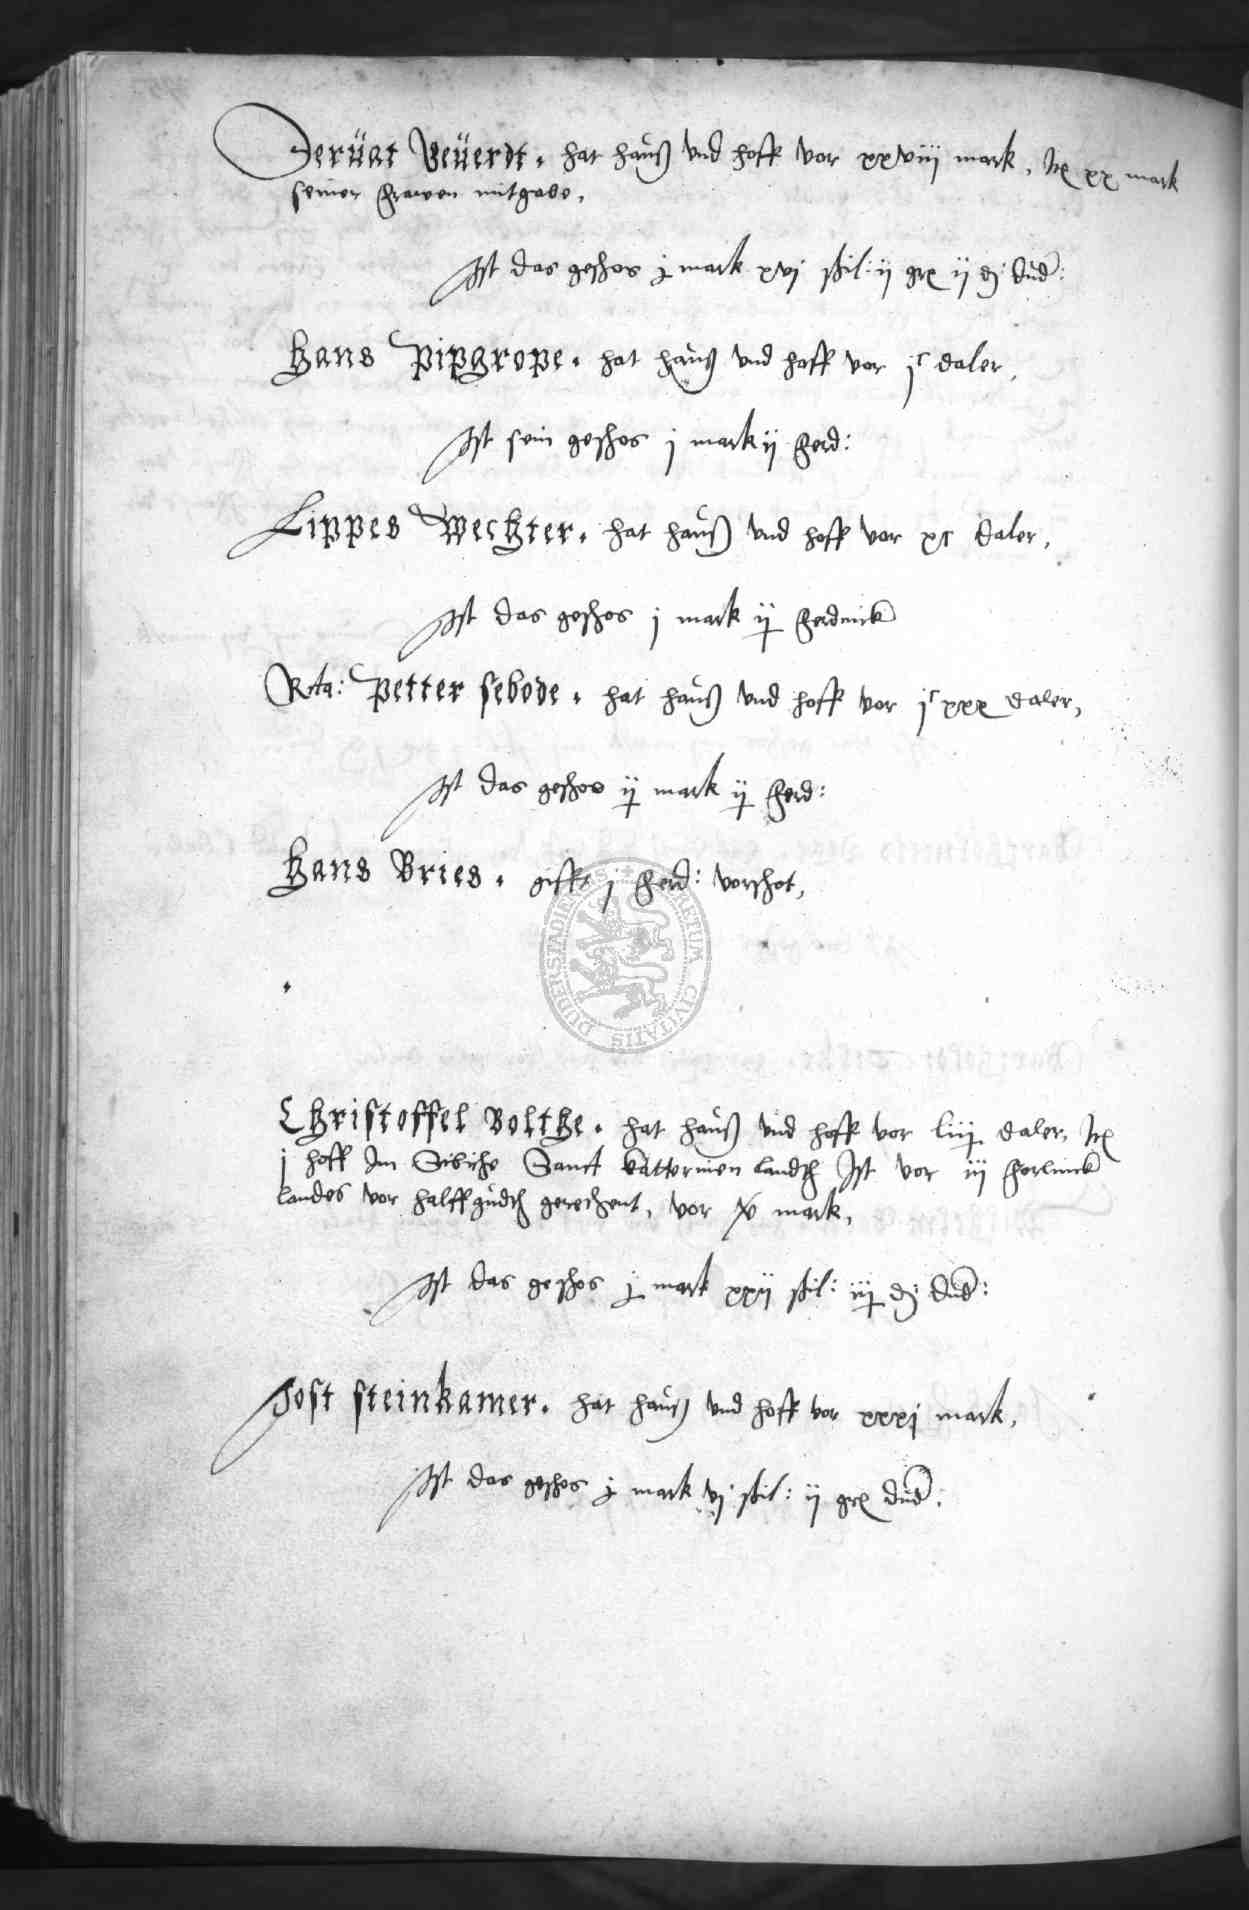 Gerüat Veüerdt. hat hauß vnd hoff vor xxviij mark, Itē xx mark
seiner frawen mitgabe,
Ist das geschos j mark xvj schil: ij grē ij dj: dud:
Hans Pipgrope. hat hauß vnd hoff vor jc daler,
Ist sein geschos j mark ij ferd:
Lippes Wechter. hat hauß vnd hoff vor xc daler,
Ist das geschos j mark ij ferdinck
Petter Sebode. hat hauß vnd hoff vor jc xxx daler,
Ist das geschos ij mark ij ferd:
Hans Bries. gifft j ferd: vorschot,
Christoffel Bolthe. hat hauß vnd hoff vor liij daler, Itē
j hoff Im Sanct Katterinen landth Ist vor iij ferlinck
landes vor halffgudth gerechent, vor xv mark,
Ist das geschos j mark xxij schil: iij dj: dud:
Jost Steinkamer. hat hauß vnd hoff vor xxxj mark,
Ist das geschos j mark vj schil: ij grē dud:
DUDERSTADIENSIS SECRETUM CIVITATIS